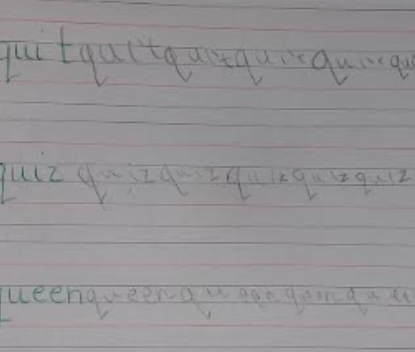 quit quit quiz quick quick qui
quiz quiz quiz quiz quiz quiz
queen queen queen queen quee